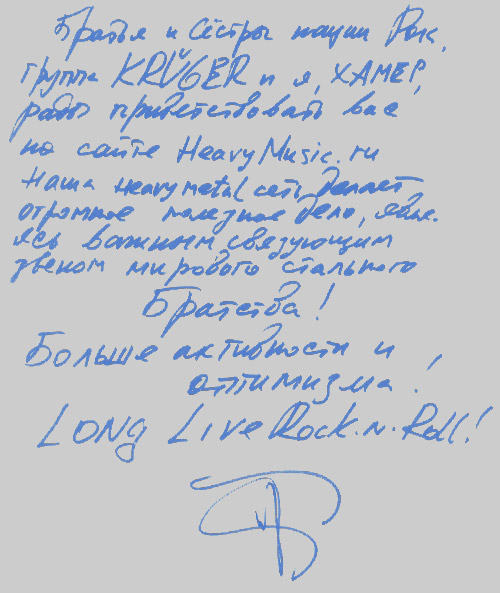 Братья и Сёстры нации Рок,
группа KRÜGER и я, ХАМЕР,
рады приветствовать вас
на сайте HeavyMusic.ru
Наша Heavy metal сеть делает
огромное полезное дело, явл-
яясь важным, связующим
звеном мирового стального
Братства!
Больше активности и
оптимизма!
LONG LIVE Rock-N-Roll!